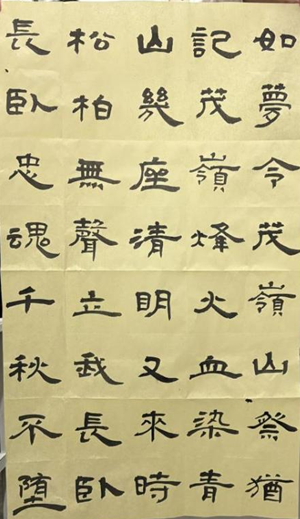 如夢令茂嶺山祭猶
記茂嶺烽火血染青
山幾座清明又來時
松柏無聲立我長臥
長臥忠魂千秋不墮